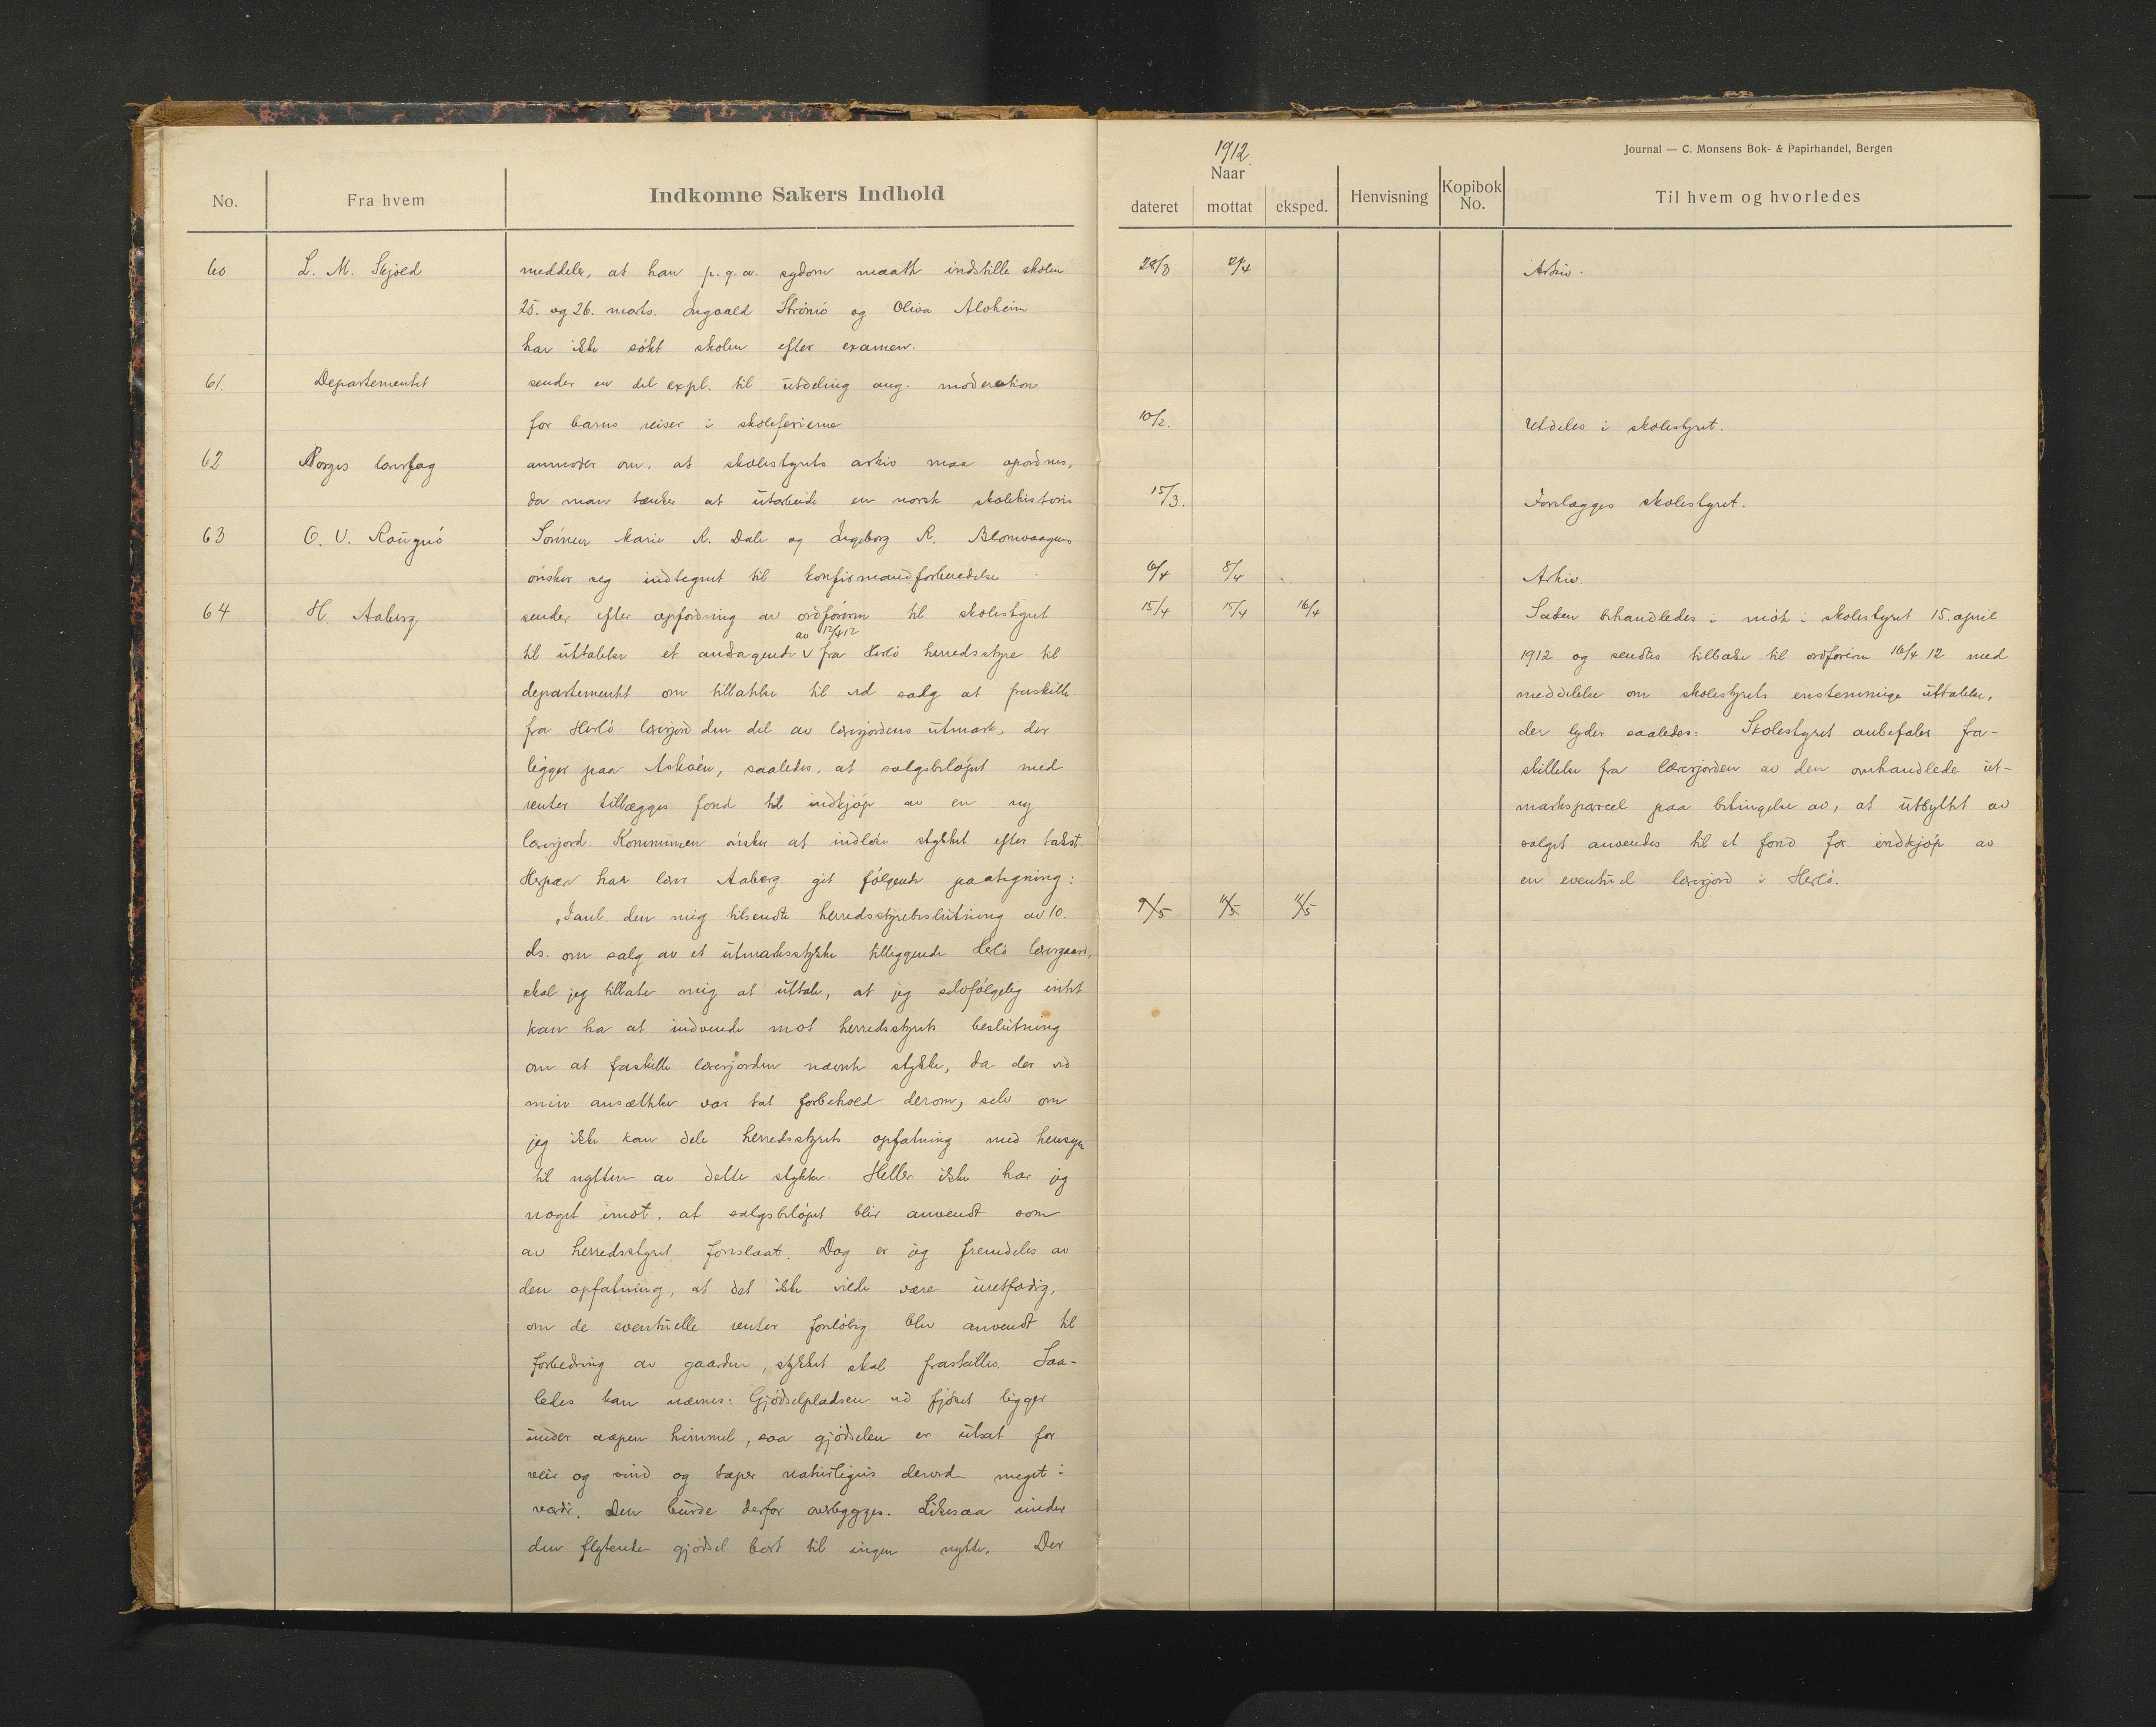 1912.
Journal — C. Monsens Bok- & Papirhandel, Bergen
No.
Fra hvem
Indkomne Sakers Indhold
Naar
dateret
mottat
eksped.
Henvisning
Kopibok No.
Til hvem og hvorledes
60
L. M. Skjold
meddeler, at han p.g.a. sygdom maatte indstille skolen
28/3
2/4
Arkiv.
25. og 26. marts. Ingvald Strömö og Oliva Alvheim
har ikke sökt skolen efter examen.
61.
Departementet
sender en del expl. til utdeling ang. moderation
for barns reiser i skoleferierne
10/2.
Utdeles i skolestyret.
62
Norges lærerlag
anmoder om, at skolestyrets arkiv maa opordnes,
da man tænker at utarbeide en norsk skolehistorie
15/3.
Forelægges skolestyret.
63
O. V. Rougnö
Sönnen Marie R. Dale og Ingeborg R. Blomvaagnes
önsker seg indtegnet til konfirmandforberedelse
6/4
8/4
Arkiv.
64
H. Aaberg
sender efter opfordring av ordföreren til skolestyret
15/4
15/4
16/4
Saken behandledes i möte i skolestyret 15. april
av 12/4 12
til uttalelse et andragende V fra Herlö herredsstyre til
1912 og sendtes tilbake til ordföreren 16/4 12 med
departementet om tillatelse til ved salg at fraskille
meddelelse om skolestyrets enstemmige uttalelse,
fra Herlö lærerjord den del av lærerjordens utmark, der
der lyder saaledes: Skolestyret anbefaler fra-
ligger paa Askøen, saaledes, at salgsbeløpet med
skillelse fra lærerjorden av den omhandlede ut-
renter tillægges fond til indkjøp av en ny
marksparcel paa betingelse av, at utbyttet av
lærerjord. Kommunen önsker at indløse stykket efter takst.
salget anvendes til et fond for indkjøp av
Herpaa har lærer Aaberg git følgende paategning:
en eventuel lærerjord i Herlö.
"Ianl. den mig tilsendte herredsstyrebeslutning av 10.
9/5
11/5
11/5
ds. om salg av et utmarksstykke tilliggende Herlö lærergaard,
skal jeg tillate mig at uttale, at jeg selvfølgelig intet
kan ha at indvende mot herredsstyrets beslutning
om at fraskille lærerjorden nævnte stykke, da der ved
min ansættelse var tat forbehold derom, selv om
jeg ikke kan dele herredsstyrets opfatning med hensyn
til nytten av dette stykke. Heller ikke har jeg
noget imot, at salgsbeløpet blir anvendt som
av herredsstyret foreslaat. Dog er jeg fremdeles av
den opfatning, at det ikke vilde være uretfærdig,
om de eventuelle renter foreløbig blev anvendt til
forbedring av gaarden, stykket skal fraskilles. Saa-
ledes kan nævnes: Gjødselpladsen ved fjøset ligger
under aapen himmel, saa gjødselen er utsat for
veir og vind og taper naturligvis derved meget i
værdi. Den burde derfor overbygges. Likesaa rinder
den flytende gjødsel bort til ingen nytte. Der